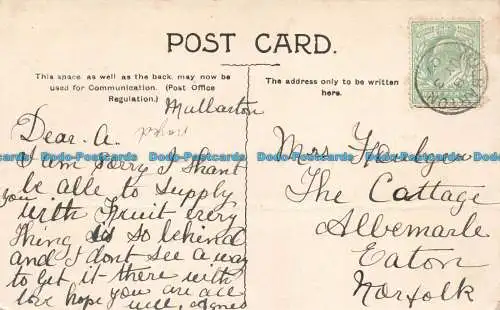 POST CARD.
This space as well as the back may now be used for Communication. (Post Office Regulation.)
The address only to be written here.
Mullarton
Dear A.
I am sorry I shant
be alle to supply
you with Fruit every
Thing is so behind
and I dont see a way
to get it there with
love hope you are all
well, Agnes
Mrs
The Cottage
Albemarle
Eaton
Norfolk
HALFPENNY
bks-Postcards.co.uk